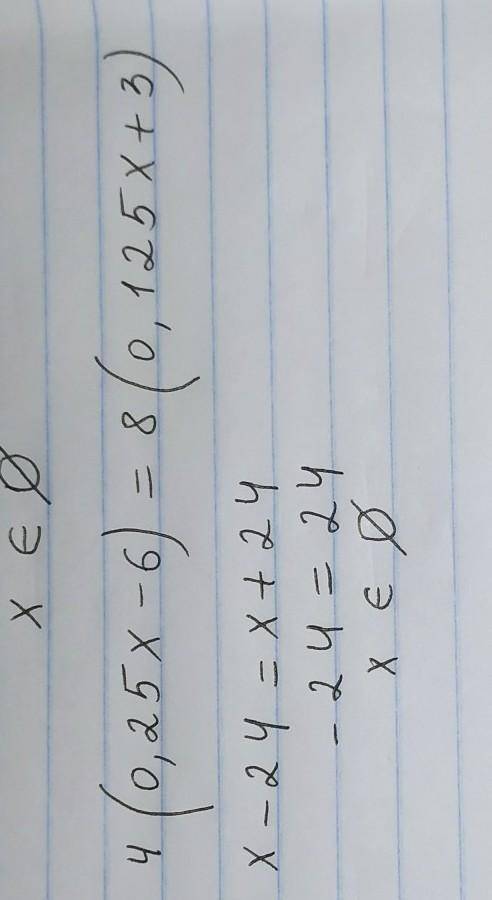 x ∈ ∅
4(0,25x-6)=8(0,125x+3)
x-24=x+24
-24=24
x ∈ ∅